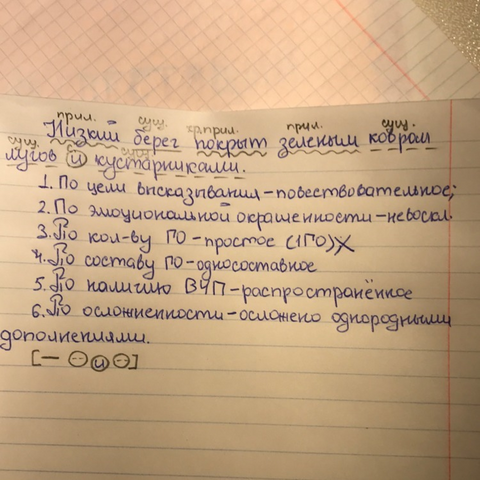 прил. сущ. кр.прил. прил. сущ.
Низкий берег покрыт зеленым ковром
сущ. сущ.
лугов и кустарниками.
1. По цели высказывания-повествовательное;
2. По эмоциональной окрашенности-невоскл.
3. По кол-ву ГО-простое (1ГО)
4. По составу ГО-односоставное
5. По наличию ВЧП-распространённое
6. По осложненности-осложено однородными
дополнениями.
[— и ]